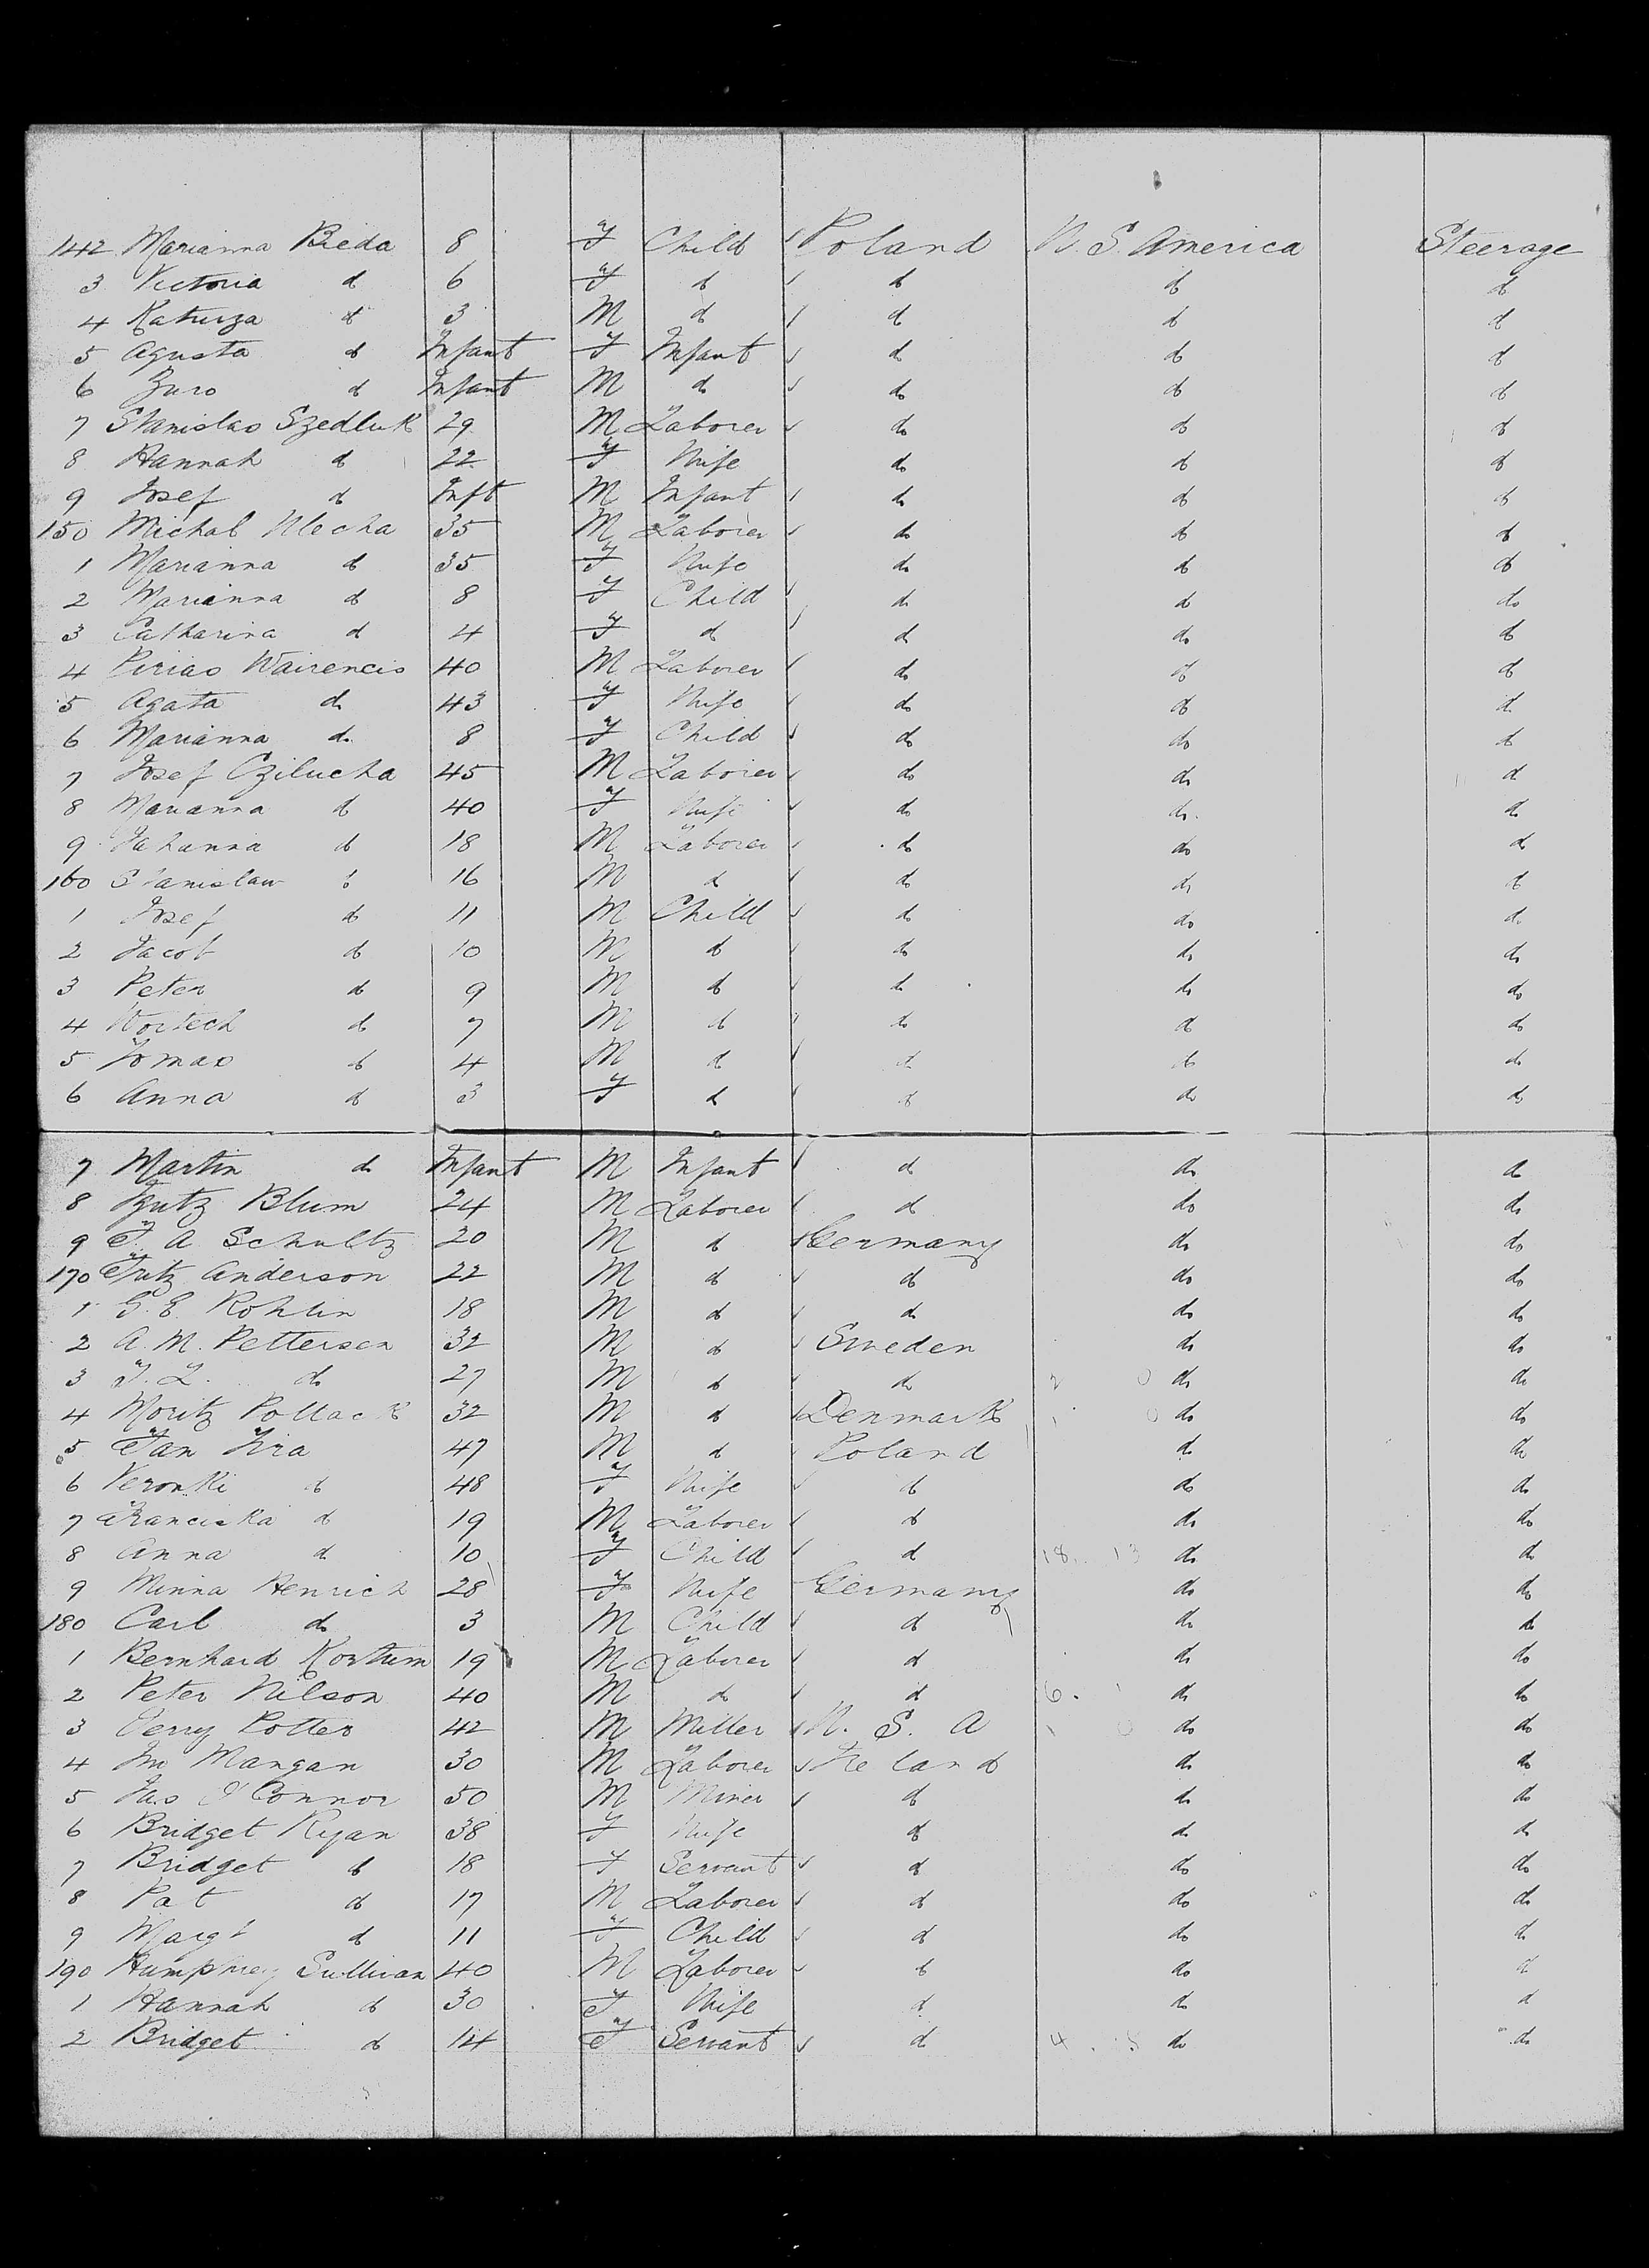 142 Marianna Bieda 8 F Child Poland U.S. America Steerage
3 Victoria do 6 F do do do do
4 Katurza do 3 M do do do do
5 Agusta do Infant F Infant do do do
6 do Infant M do do do do
7 Stanislas Szedluk 29 M Laborer do do do
8 Hannah do 22 F Wife do do do
9 Josef do Inft M Infant do do do
150 Michal Ulecha 35 M Laborer do do do
1 Marianna do 35 F Wife do do do
2 Marianna do 8 F Child do do do
3 Catharina do 4 F do do do do
4 Piriao Wairencis 40 M Laborer do do do
5 Agata do 43 F Wife do do do
6 Marianna do 8 F Child do do do
7 Josef Czilucha 45 M Laborer do do do
8 Marianna do 40 F Wife do do do
9 Johanna do 18 M Laborer do do do
160 Stanislaw do 16 M do do do do
1 Josef do 11 M Child do do do
2 Jacob do 10 M do do do do
3 Peter do 9 M do do do do
4 Wortech do 7 M do do do do
5 Tomas do 4 M do do do do
6 Anna do 3 F do do do do
7 Martin do Infant M Infant do do do
8 Blum 24 M Laborer do do do
9 F. A Schultz 20 M do Germany do do
170 Fritz Anderson 22 M do do do do
1 G. E. Rohlin 18 M do do do do
2 A. M. Petterson 32 M do Sweden do do
3 F. L. do 27 M do do do do
4 Moritz Pollack 32 M do Denmark do do
5 Jan Jira 47 M do Poland do do
6 Veronki do 48 F Wife do do do
7 Franciska do 19 M Laborer do do do
8 Anna do 10 F Child do do do
9 Minna Henrich 28 F Wife Germany do do
180 Carl do 3 M Child do do do
1 Bernhard Kortum 19 M Laborer do do do
2 Peter Nilson 40 M do do do do
3 Perry Potter 42 M Miller U. S. A do do
4 Jno Mangan 30 M Laborer Ireland do do
5 Jas O'Connor 50 M Miner do do do
6 Bridget Ryan 38 F Wife do do do
7 Bridget do 18 F Servant do do do
8 Pat do 17 M Laborer do do do
9 Margt do 11 F Child do do do
190 Humphrey Sullivan 40 M Laborer do do do
1 Hannah do 30 F Wife do do do
2 Bridget do 14 F Servant do do do